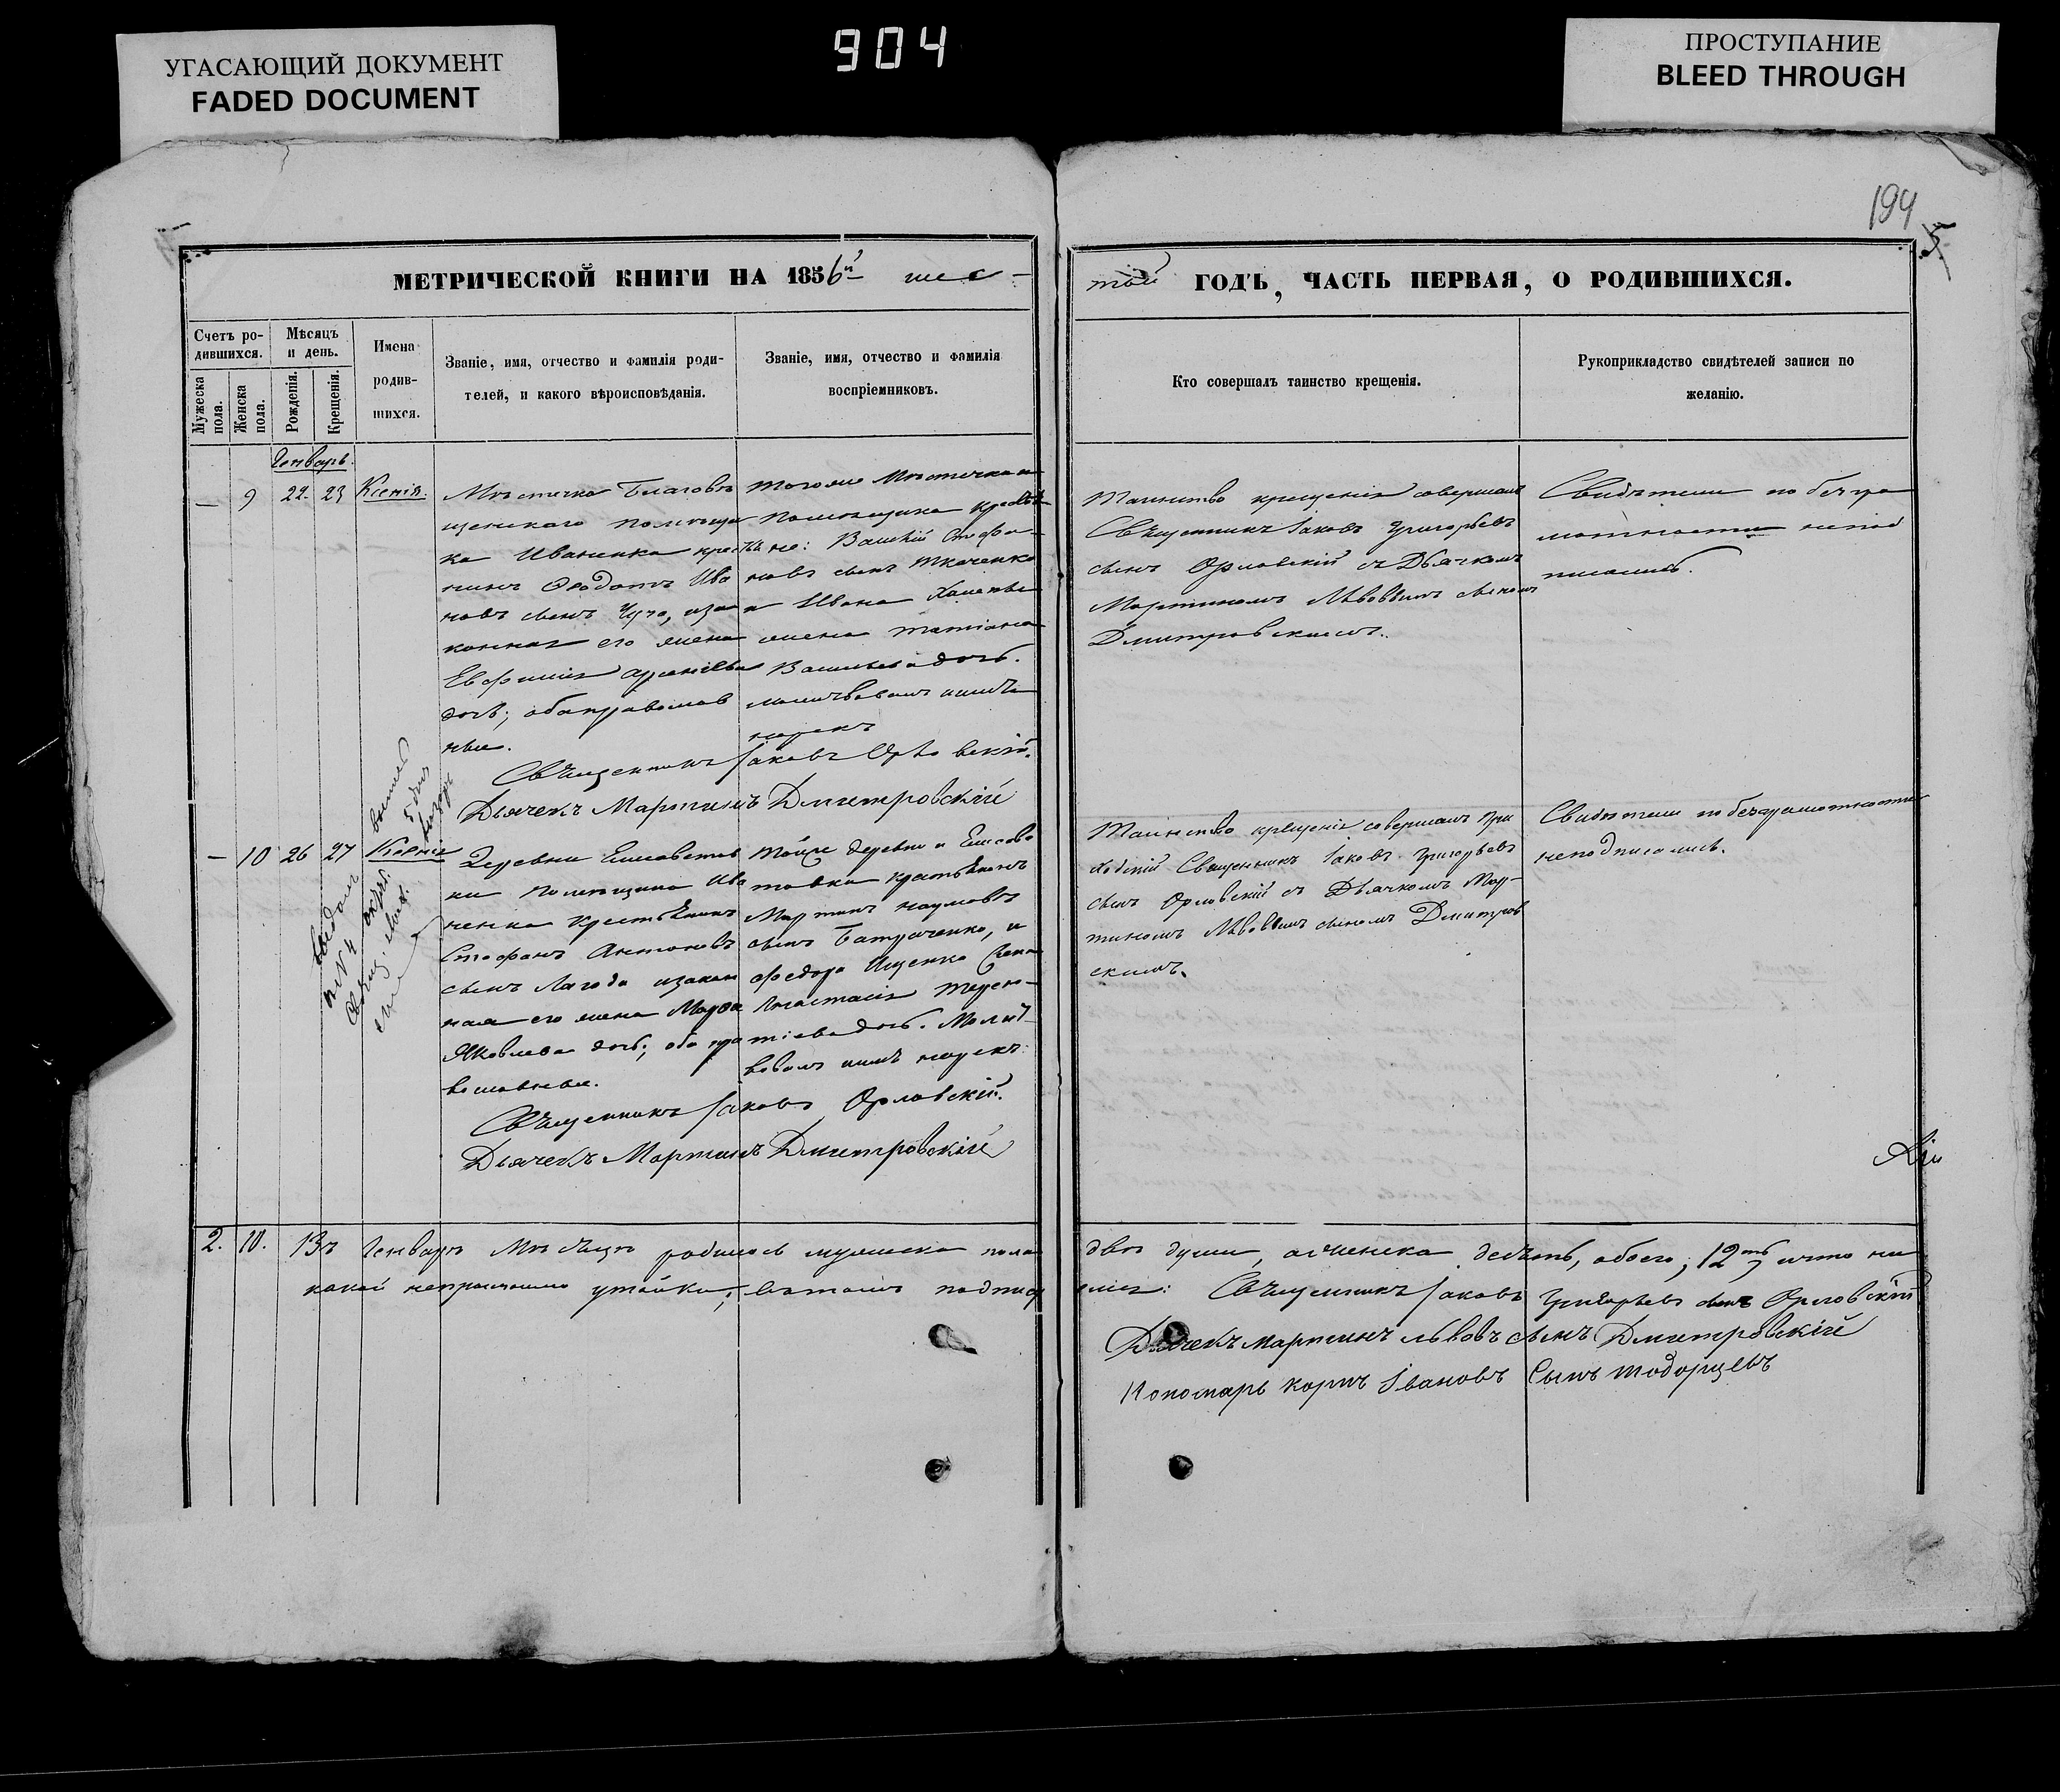 УГАСАЮЩИЙ ДОКУМЕНТ
FADED DOCUMENT
904
ПРОСТУПАНИЕ
BLEED THROUGH
194
5
МЕТРИЧЕСКОЙ КНИГИ НА 1856й шес-
той ГОДЪ, ЧАСТЬ ПЕРВАЯ, О РОДИВШИХСЯ.
Счетъ ро-
дившихся.
Мужеска
пола.
Женска
пола.
Мѣсяцъ
и день.
Рожденія.
Крещенія.
Имена
родив-
шихся.
Званіе, имя, отчество и фамилія роди-
телей, и какого вѣроисповѣданія.
Званіе, имя, отчество и фамилія
воспріемниковъ.
Кто совершалъ таинство крещенія.
Рукоприкладство свидѣтелей записи по
желанію.
Генварь.
— 9 22. 23 Ксенія.
Мѣстечка Благовѣ
щенскаго помѣщи
ка Иваненка крестья
нинъ Ѳеодотъ Ива
новъ сынъ изза
конная его жена
Евфимія
дочь; обаправослав
ные.
тогоже Мѣстечка и
помѣщика крестья
не: Василій Стефа-
новъ сынъ Ткаченко
и Ивана
жена Татіана
Васильева дочь.
молитвовалъ иимѧ
нарекъ
Священникъ Іаковъ Орловскій.
Дьячекъ Мартинъ Дмитровскій
Таинство крещенія совершалъ
Священникъ Іаковъ Григорьевъ
сынъ Орловскій съ Дьячкомъ
Мартиномъ Львовымъ сыномъ
Дмитровскимъ.
Свидѣтели по безгра
мотности непод
писались.
— 10 26 27 Ксенія
Деревни Елисаветов
ки помѣщика Ива
ненка крестьянинъ
Стефанъ Антоновъ
сынъ Лагода изакон
ная его жена Марѳа
Яковлева дочь; оба пра
вославные.
тойже деревни Елисаве
товки крестьянинъ
Мартинъ Наумовъ
сынъ Батраченко, и
Федора Ищенка жена
Анастасія Терен-
тіева дочь. Молит
вовалъ иимѧ нарекъ:
Священникъ Іаковъ Орловскій.
Дьячекъ Мартинъ Дмитровскій
Таинство крещенія совершалъ при
ходскій Священникъ Іаковъ Григорьевъ
сынъ Орловскій съ Дьячкомъ Мар-
тиномъ Львовымъ сыномъ Дмитров
скимъ.
Свидѣтели по безграмотности
неподписались.
2. 10. Въ Генварѣ Мѣсяцѣ родилось мужеска пола
двѣ души, аженска десѧть, обоего, 12ть что ни
какой непроизошло утайки; вътомъ подпису
емсѧ: Священникъ Іаковъ Григорьевъ сынъ Орловскій
Дьячекъ Мартинъ Львовъ сынъ Дмитровскій
Пономарь Івановъ Сынъ